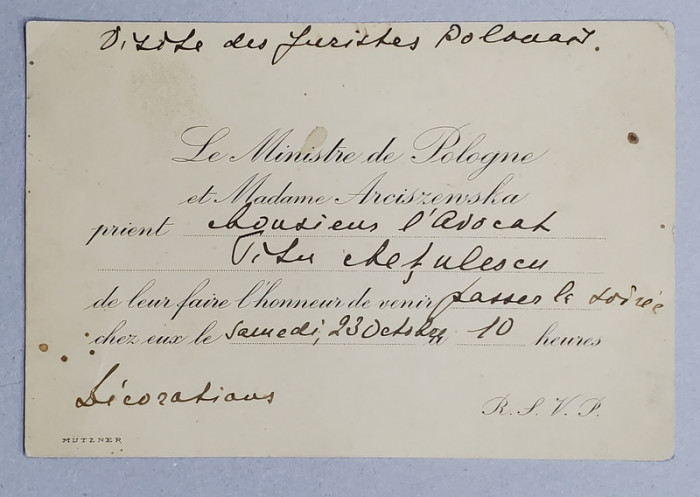 Visite des Juristes Polonais.
Le Ministre de Pologne
et Madame Arciszewska
prient Monsieur l'Avocat
Titu
de leur faire l'honneur de venir passer la soirée
chez eux le Samedi, 23 Octobre 10 heures
Décorations
R. S. V. P.
MÜTZNER